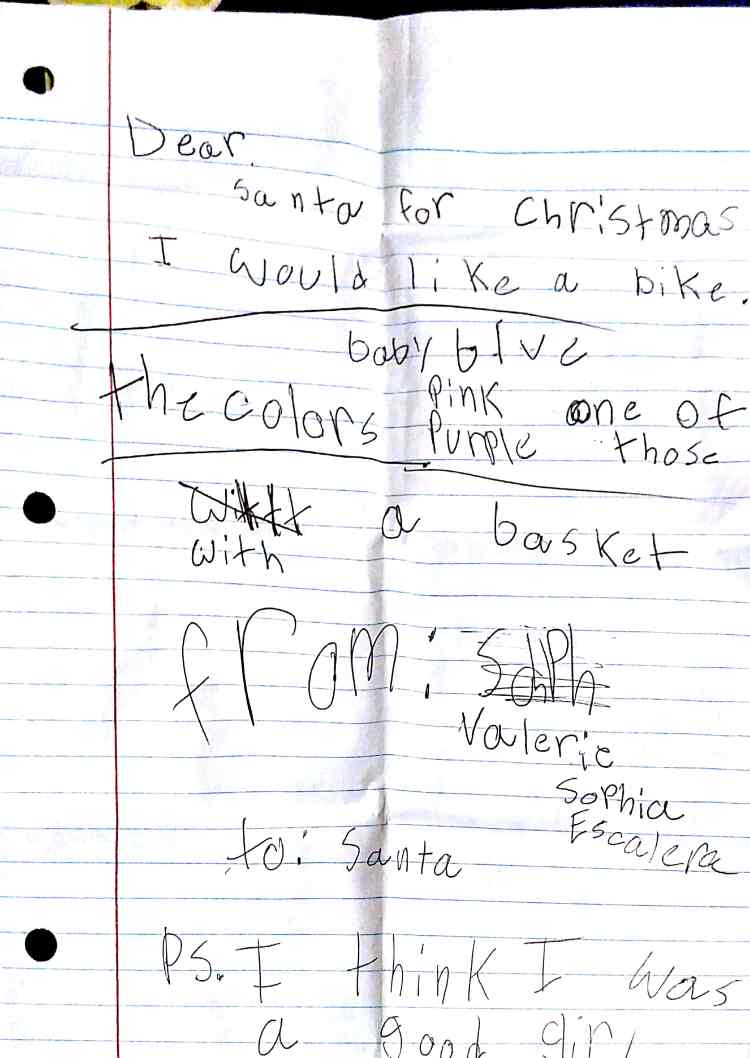 Dear.
santa for Christmas
I would like a bike.
baby blue
the colors pink one of
purple those
with a basket
from:
Valerie
Sophia
Escalera
to: Santa
PS. I think I was
a good girl